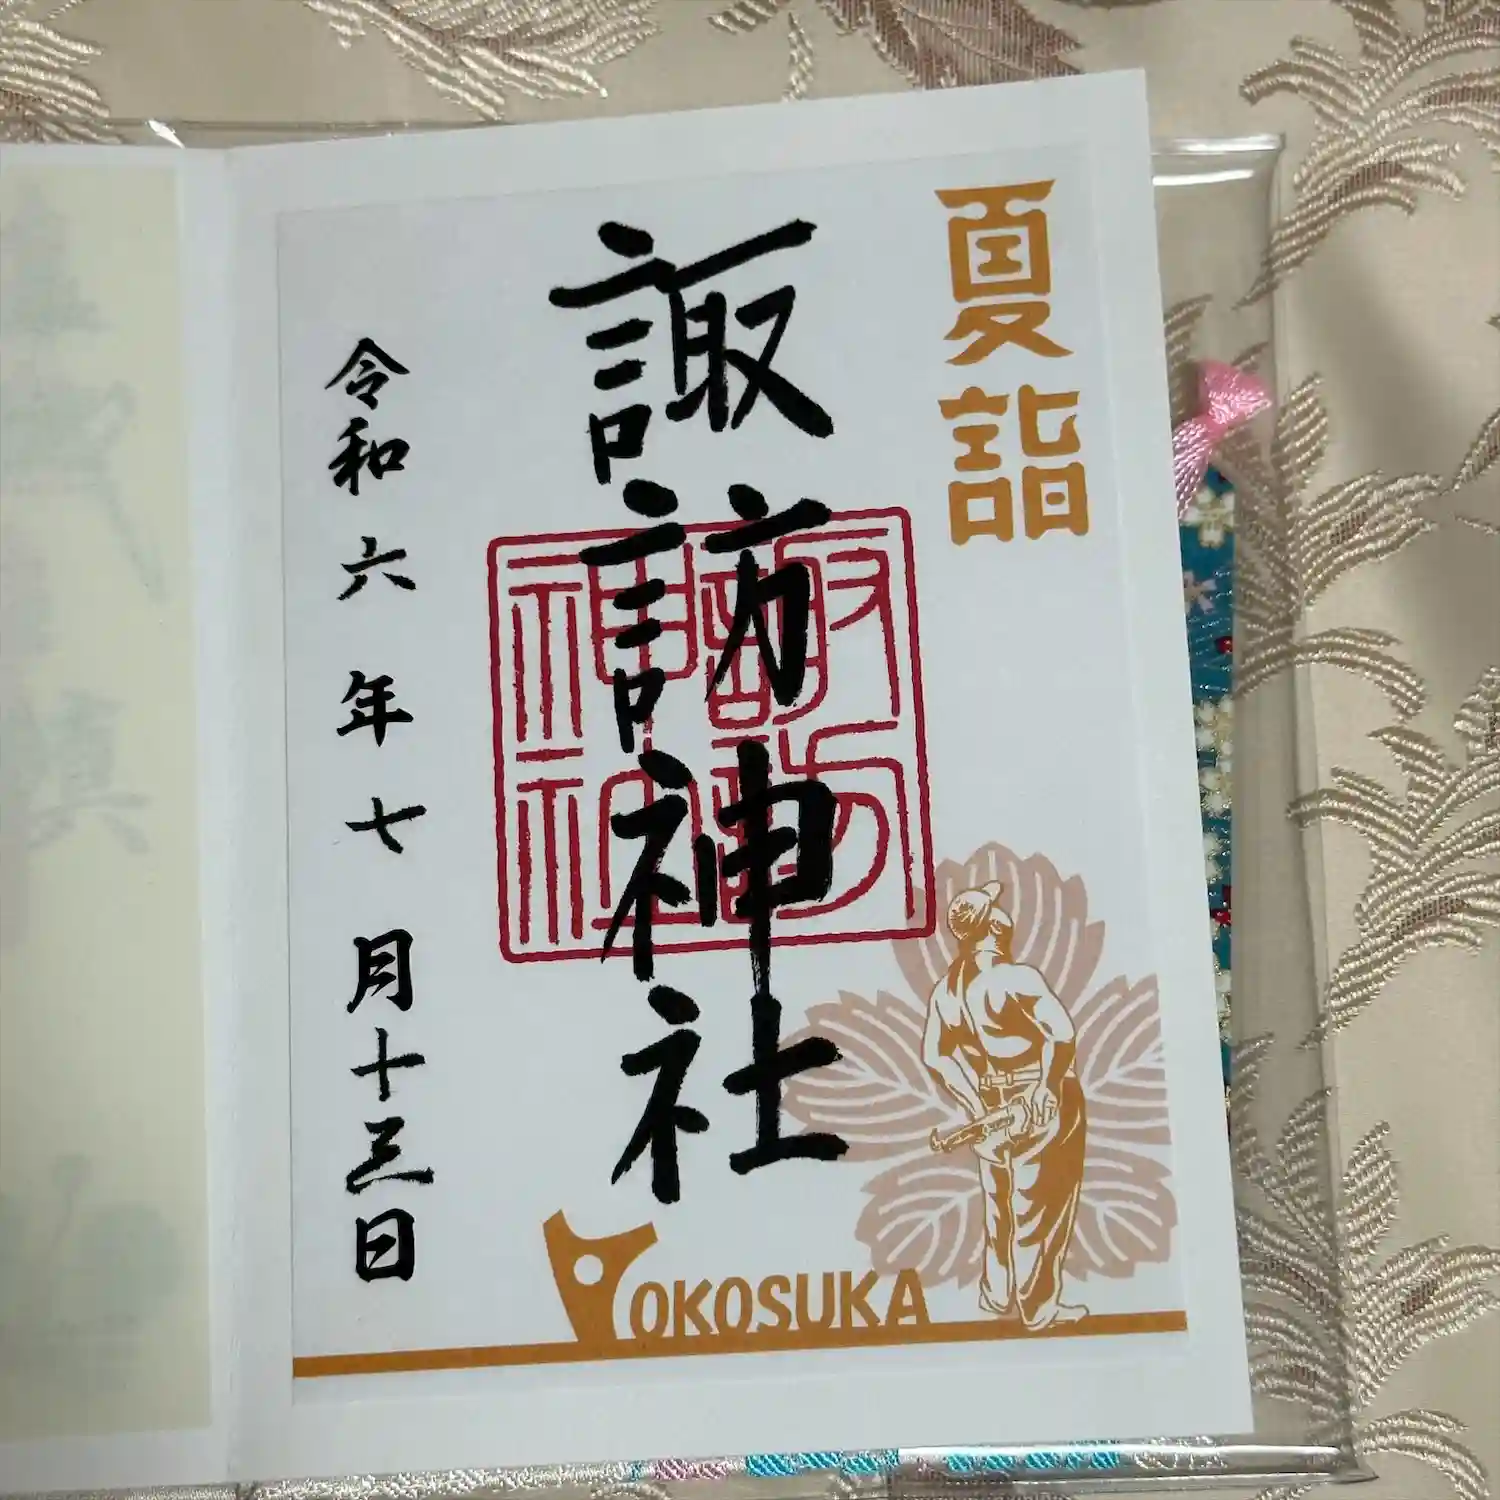 夏詣
諏訪神社
諏訪神社
令和六年七月十三日
YOKOSUKA